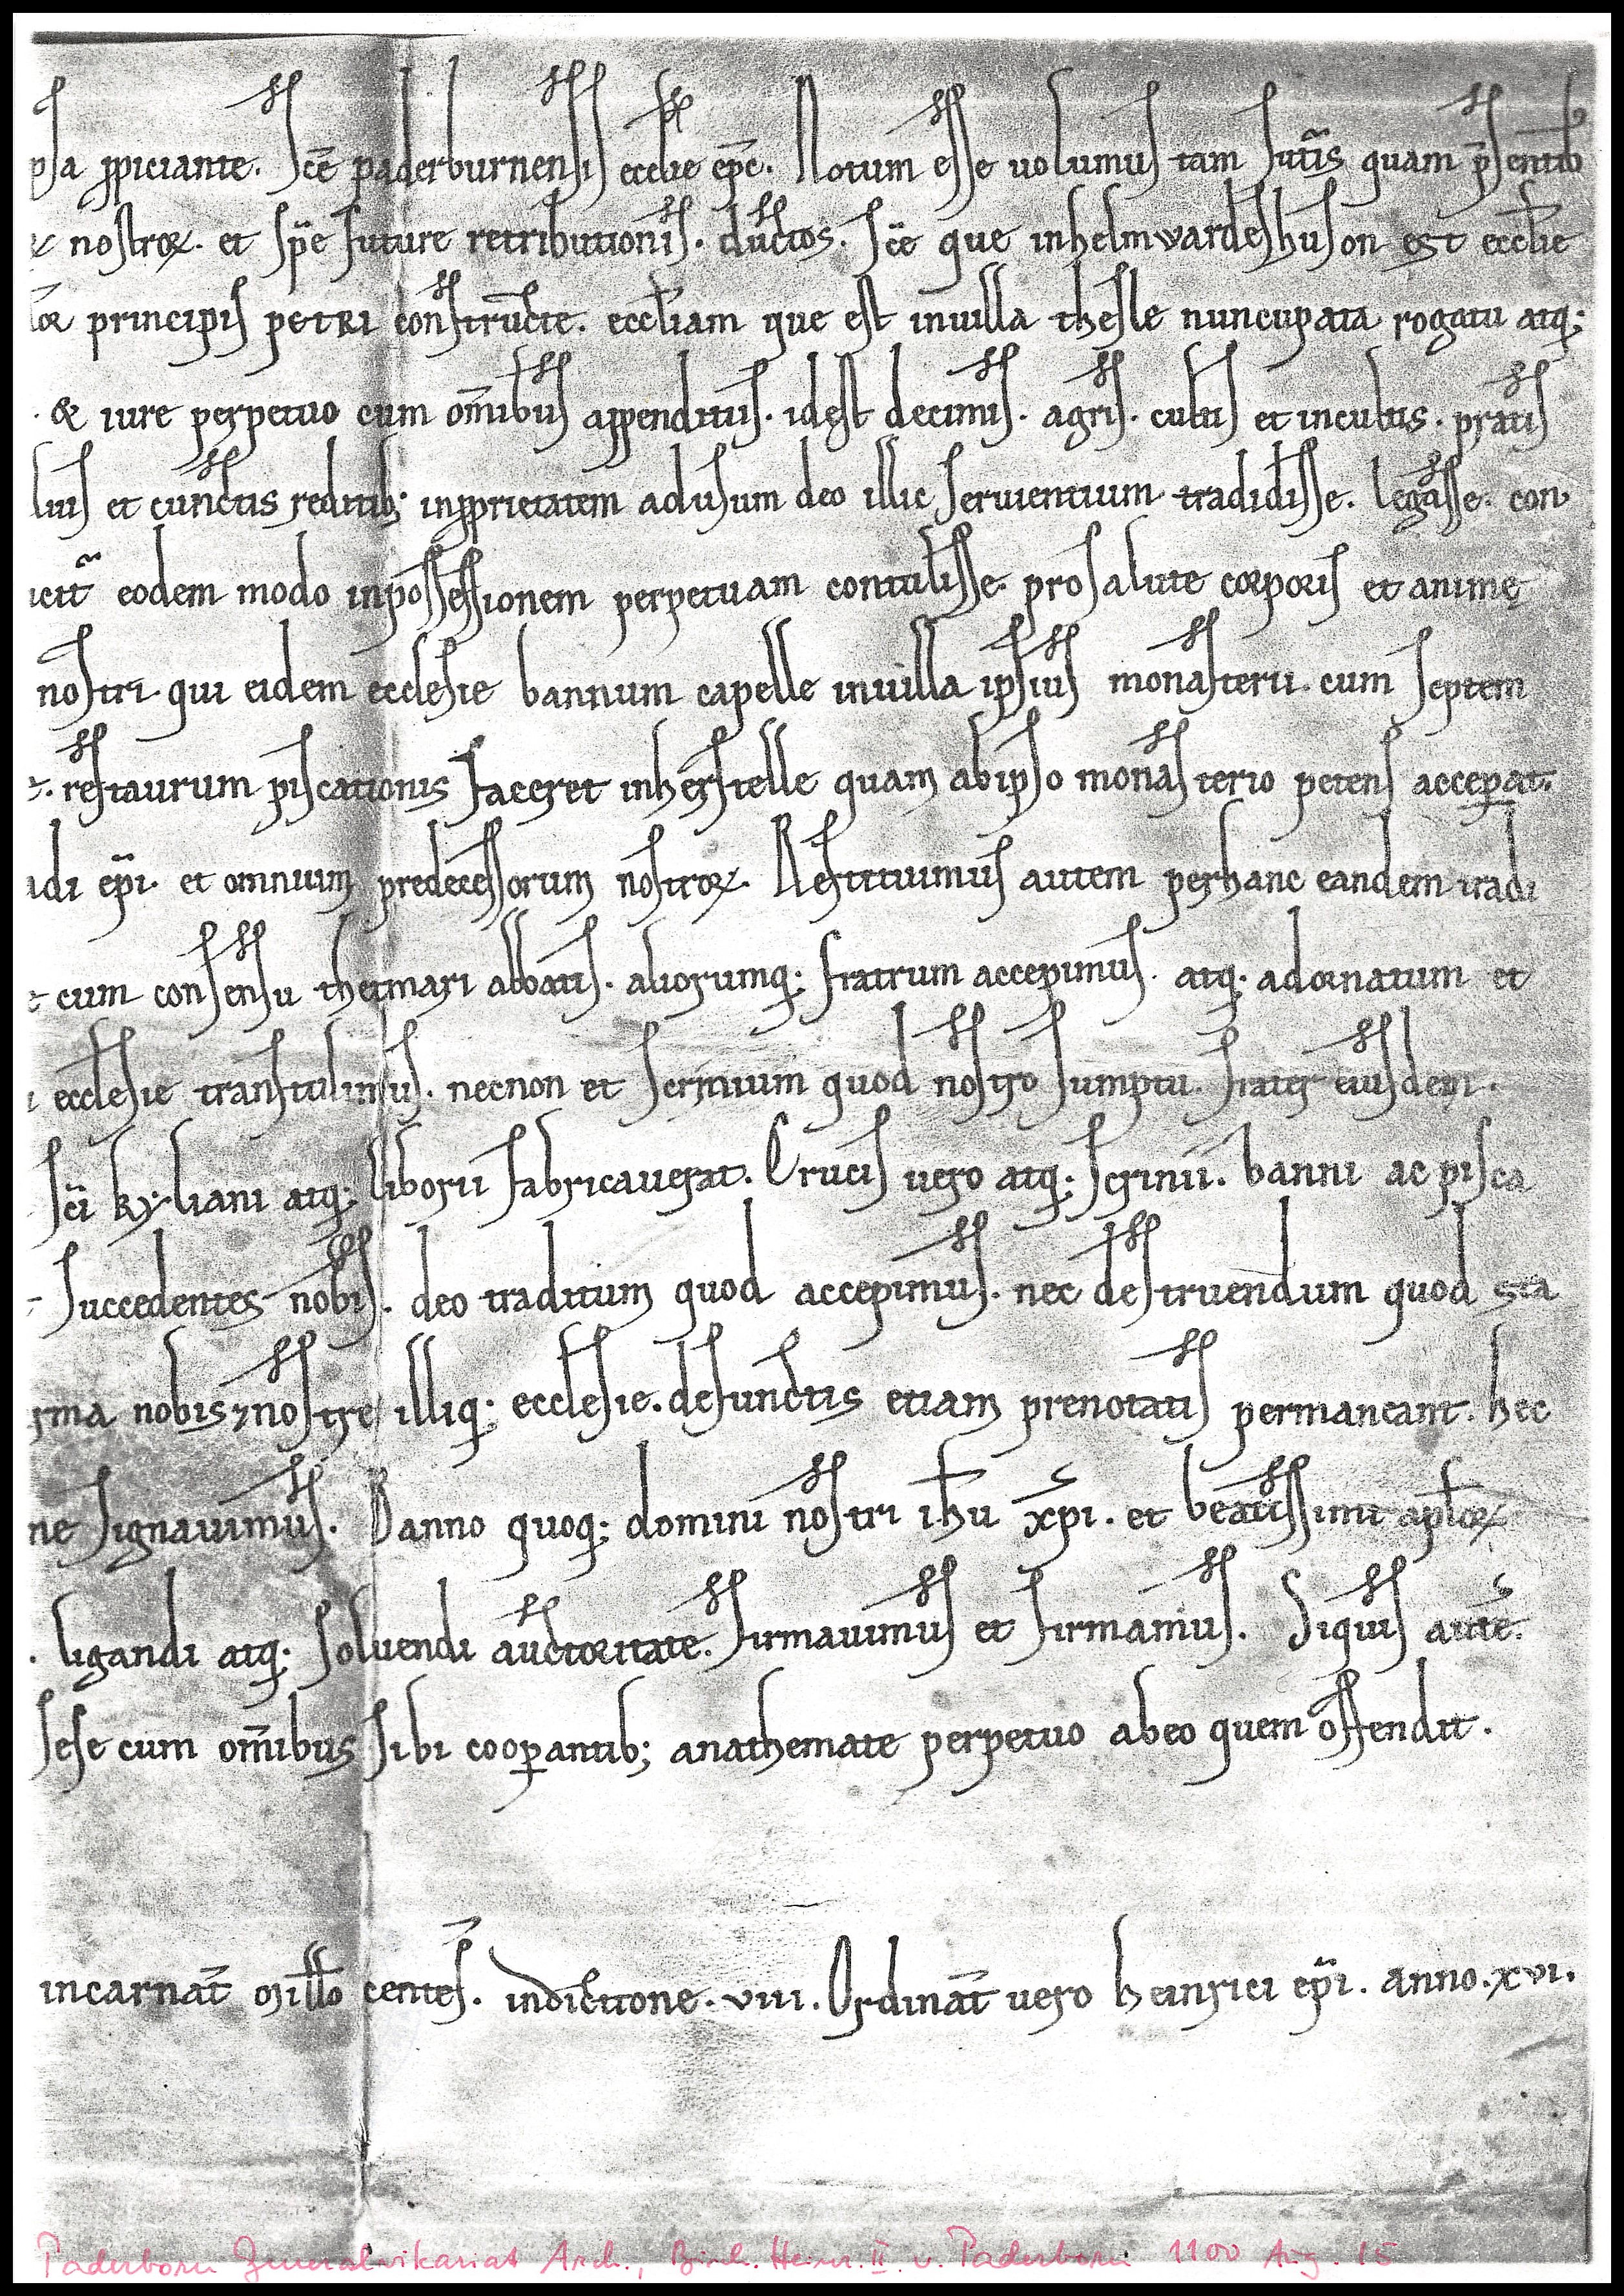 psa ppiciante. Scē paderburnensis eccłie epc̄. Notum esse uolumus tam futuris quam p̄sentib
nostroꝝ. et spe future retributionis. ductos. scē que inhelmwardeshuson est eccłie
principis petri constructe. eccłiam que est inuilla thesle nuncupata rogatu atq;
. & iure perpetuo cum om̄ibus appenditiis. idest decimis. agris. cultis et incultis. pratis
et cunctis reditib; inpprietatem adusum deo illic seruientium tradidisse. legasse. con
eodem modo inpossessionem perpetuam contulisse. prosalute corporis et animę
nostri. qui eidem ecclesie bannum capelle inuilla ipsius monasterii. cum septem
restaurum piscationis faceret inherstelle quam abipso monasterio petens accep̱at.
adi ep̄i. et omnium predecessorum nostroꝝ. Restituimus autem perhanc eandem tradi
cum consensu thetmari abbatis. aliorumq; fratrum accepimus. atq; adornatum et
ecclesie transtulimus. necnon et scrinium quod nostro sumptu. frater eiusdem.
scī kyliani atq; liborii fabricauerat. Crucis uero atq; scrinii. banni ac pisca
succedentes nobis. deo traditum quod accepimus. nec destruendum quod sta
rma nobis ⁊ nostre illiq; ecclesie. defunctis etiam prenotatis permaneant. hec
ne signauimus. Banno quoq; domini nostri ihū xp̄i. et beatissimi apłoꝝ
. ligandi atq; soluendi auctoritate. firmauimus et firmamus. Siquis autē.
sese cum om̄ibus sibi coop̱antib; anathemate perpetuo abeo quem offendit.
incarnat̄ millo centes̄. indictione. viii. Ordinat̄ uero heinrici ep̄i. anno. xvi.
Paderborn Generalvikariat Arch., Bisch. Heinr. II. v. Paderborn 1100 Aug. 15